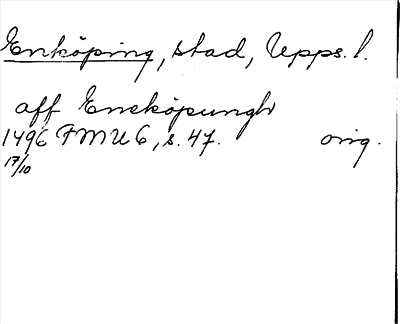 Enköping, stad, Upps. l.
aff Eneköpungh
1496 FMU 6, s. 47. orig.
17/10